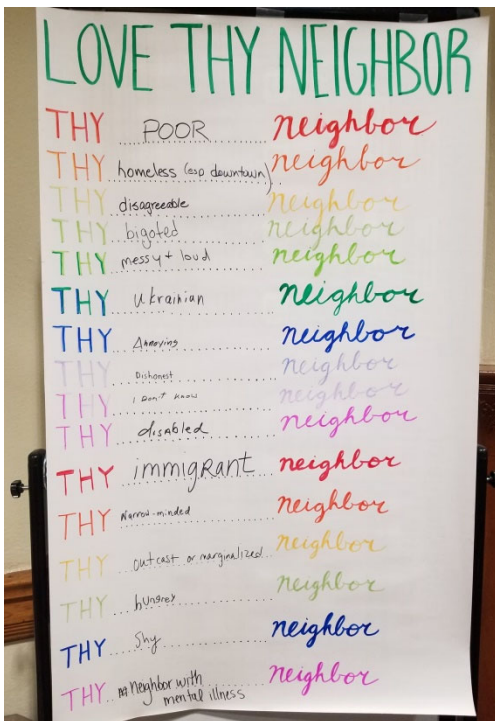 LOVE THY NEIGHBOR
THY POOR neighbor
THY homeless (esp downtown) neighbor
THY disagreeable neighbor
THY bigoted neighbor
THY messy + loud neighbor
THY Ukrainian neighbor
THY Annoying neighbor
THY Dishonest neighbor
THY I Don't know neighbor
THY disabled neighbor
THY immigrant neighbor
THY Narrow-minded neighbor
THY outcast or marginalized neighbor
THY hungry neighbor
THY Shy neighbor
THY Neighbor with neighbor
mental illness